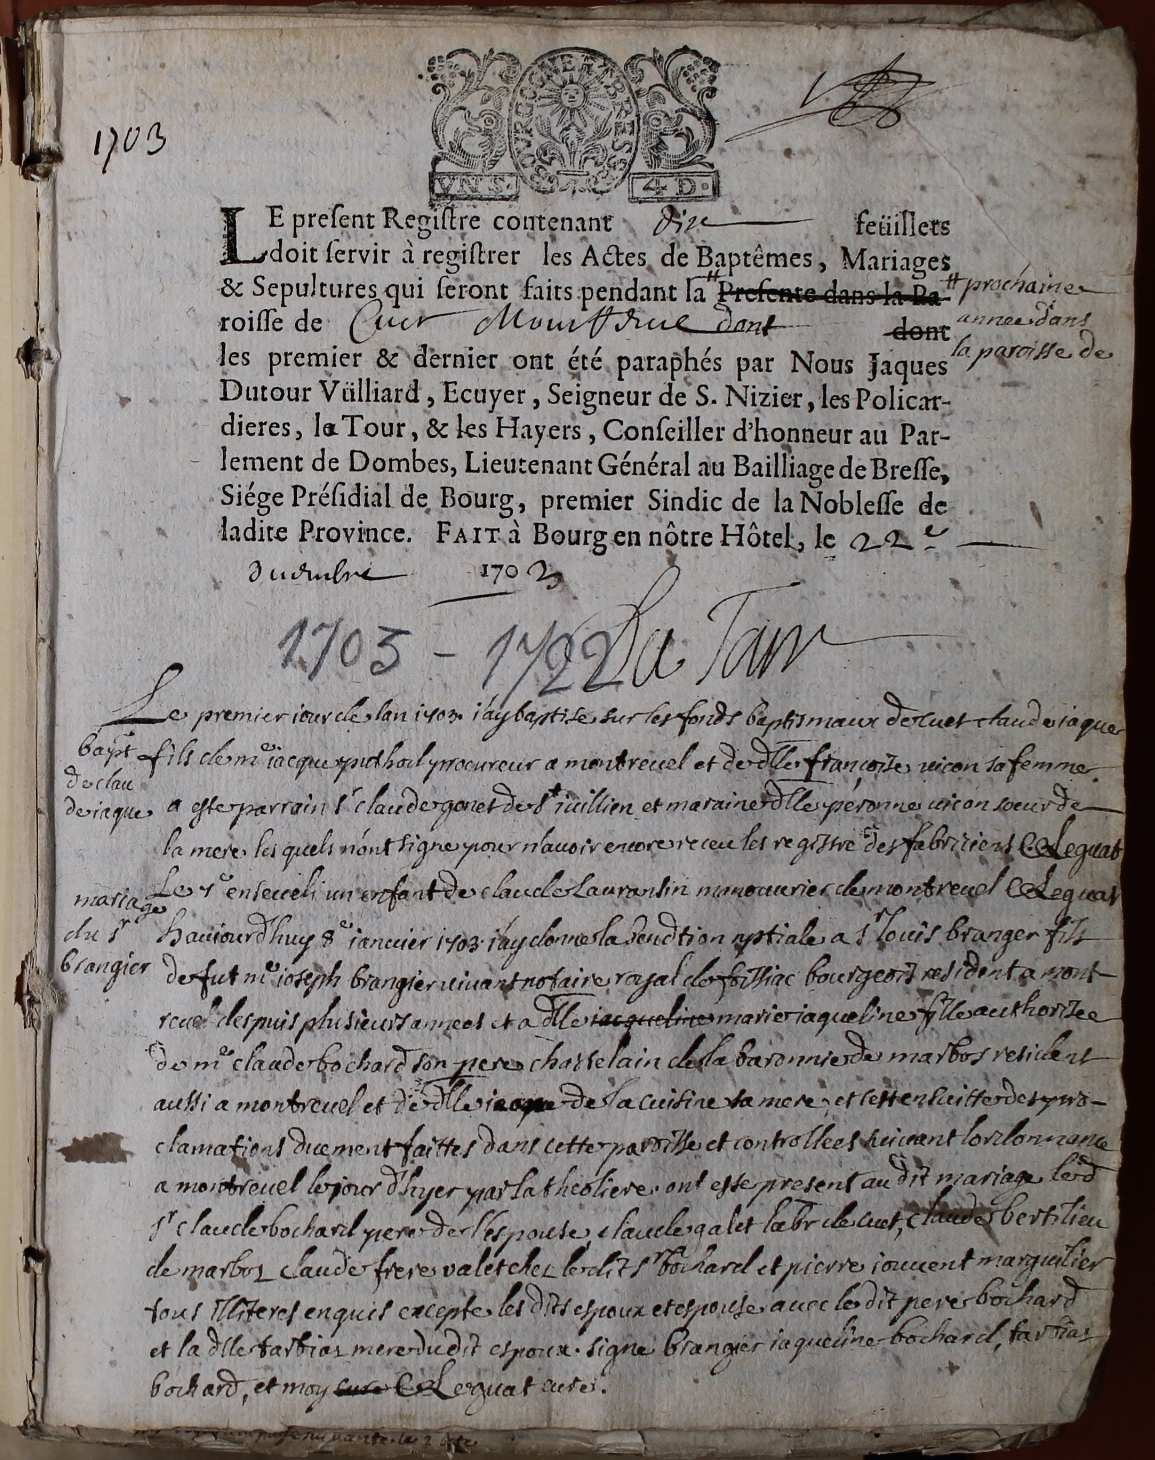 1703
BOURGOGNE & BRESSE
VN S. 4 D.
LE preſent Regiſtre contenant dix feüillets
doit ſervir à regiſtrer les Actes de Baptêmes, Mariages
& Sepultures qui ſeront faits pendant la # Preſente dans la Pa-
# prochaine
annee dans
la paroisse de
roiſſe de Cuet Montreuel dont dont
les premier & dernier ont été paraphés par Nous Jaques
Dutour Vülliard, Ecuyer, Seigneur de S. Nizier, les Policar-
dieres, la Tour, & les Hayers, Conſeiller d'honneur au Par-
lement de Dombes, Lieutenant Général au Bailliage de Breſſe,
Siége Préſidial de Bourg, premier Sindic de la Nobleſſe de
ladite Province. FAIT à Bourg en nôtre Hôtel, le 22e
1703
1703 - 1722 La Tour
Le premier iour de lan 1703. i'ay baptise sur les fonds baptismaux de cuet claude iaque
bapt
de clau
de iaque
fils de me iacque puthod procureur a montreuel et de dlle françoise uicon sa femme.
a esté parrain sr claude gonet de st iuillien et maraine dlle péronne uicon soeur de
la mere les quels n'ont signe pour n'auoir encore receu les registre des fabriciens C Leguat
Le 7e enseueli un enfant de claude Lauransin manouurier de montreuel C Leguat
mariage
du sr
brangier
haujourdhuy 8e ianuier 1703 i'ay donne la benediction nptiale a sr louis brangier fils
de fut me ioseph brangier uiuant notaire royal de foissiac bourgeois resident a mont-
reuel despuis plusieurs annees et a dlle iacqueline marie iaqueline fille authorisee
de me claude bochard son pere chasselain de la baronnie de marbos resident
aussi a montreuel et de dlle de la cuisine sa mere, et cest ensuitte des pro-
clamations duement faittes dans cette paroisse et controllees suiuant lordonnance
a montreuel le jour d'hyer par la theoliere. ont esse present audit mariage led
sr claude bochard pere de l'espouse, claude galet labr de cuet, claude bertilieu
de marboz claude frere valet chez le dit sr bochard et pierre iouuent marguilier
tous illiteres enquis excepte les dits espoux et espouse auec le dit pere bochard
et la dlle tarbias mere du dit espoux. signe brangier iaqueline bochard, tarbias
bochard, et moy cure C Leguat cure.